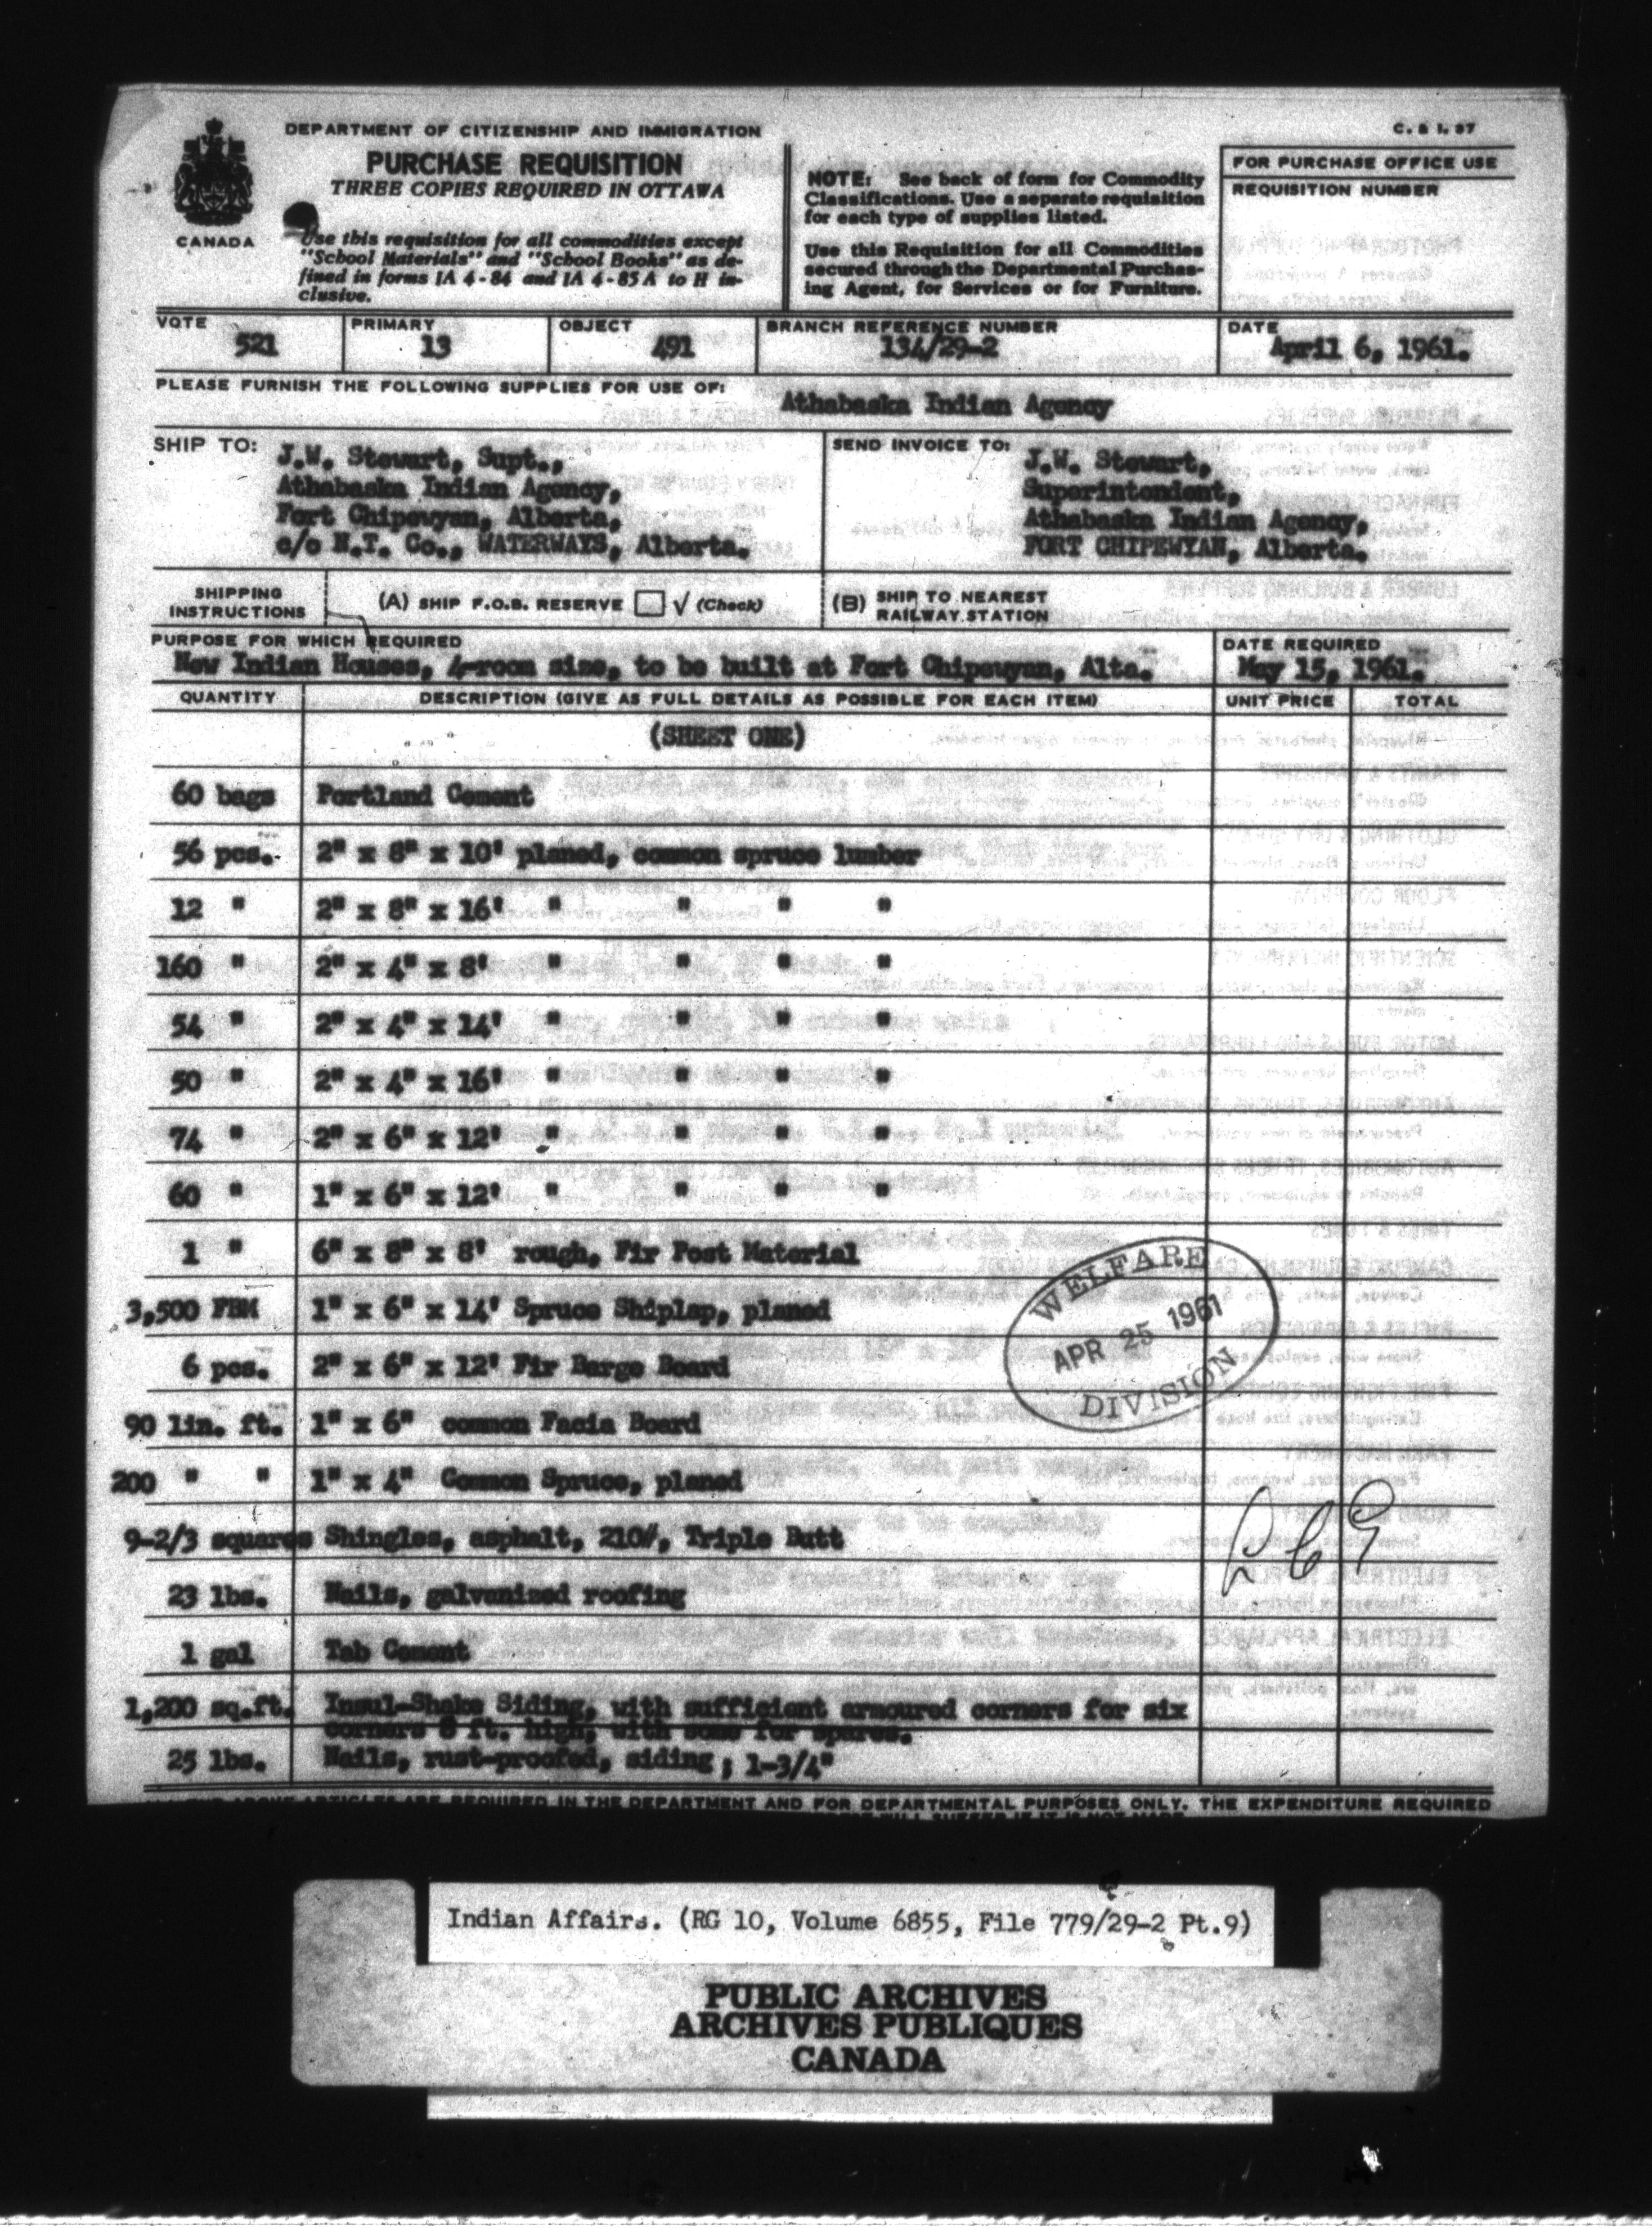 DEPARTMENT OF CITIZENSHIP AND IMMIGRATION
C. & I. 37
PURCHASE REQUISITION
THREE COPIES REQUIRED IN OTTAWA
CANADA
Use this requisition for all commodities except
"School Materials" and "School Books" as de-
fined in forms IA 4-84 and IA 4-85A to H in-
clusive.
NOTE: See back of form for Commodity
Classifications. Use a separate requisition
for each type of supplies listed.
Use this Requisition for all Commodities
secured through the Departmental Purchas-
ing Agent, for Services or for Furniture.
FOR PURCHASE OFFICE USE
REQUISITION NUMBER
VOTE PRIMARY OBJECT BRANCH REFERENCE NUMBER DATE
521 13 491 134/29-2 April 6, 1961.
PLEASE FURNISH THE FOLLOWING SUPPLIES FOR USE OF: Athabaska Indian Agency
SHIP TO: J.W. Stewart, Supt.,
Athabaska Indian Agency,
Fort Chipewyan, Alberta,
c/o N.T. Co., WATERWAYS, Alberta.
SEND INVOICE TO: J.W. Stewart,
Superintendent,
Athabaska Indian Agency,
FORT CHIPEWYAN, Alberta.
SHIPPING
INSTRUCTIONS
(A) SHIP F.O.B. RESERVE √ (Check)
(B) SHIP TO NEAREST
RAILWAY STATION
PURPOSE FOR WHICH REQUIRED
New Indian Houses, 4-room size, to be built at Fort Chipewyan, Alta.
DATE REQUIRED
May 15, 1961.
QUANTITY DESCRIPTION (GIVE AS FULL DETAILS AS POSSIBLE FOR EACH ITEM) UNIT PRICE TOTAL
(SHEET ONE)
60 bags Portland Cement
56 pcs. 2" x 8" x 10' planed, common spruce lumber
12 " 2" x 8" x 16' " " " "
160 " 2" x 4" x 8' " " " "
54 " 2" x 4" x 14' " " " "
50 " 2" x 4" x 16' " " " "
74 " 2" x 6" x 12' " " " "
60 " 1" x 6" x 12' " " " "
1 " 6" x 8" x 8' rough, Fir Post Material
3,500 FBM 1" x 6" x 14' Spruce Shiplap, planed
6 pcs. 2" x 6" x 12' Fir Barge Board
90 lin. ft. 1" x 6" common Facia Board
200 " " 1" x 4" Common Spruce, planed
9-2/3 squares Shingles, asphalt, 210#, Triple Butt
23 lbs. Nails, galvanized roofing
1 gal Tab Cement
1,200 sq.ft. Insul-Shake Siding, with sufficient armoured corners for six
corners 8 ft. high, with some for spares.
25 lbs. Nails, rust-proofed, siding; 1-3/4"
WELFARE
APR 25 1961
DIVISION
ABOVE ARTICLES ARE REQUIRED IN THE DEPARTMENT AND FOR DEPARTMENTAL PURPOSES ONLY. THE EXPENDITURE REQUIRED
Indian Affairs. (RG 10, Volume 6855, File 779/29-2 Pt.9)
PUBLIC ARCHIVES
ARCHIVES PUBLIQUES
CANADA